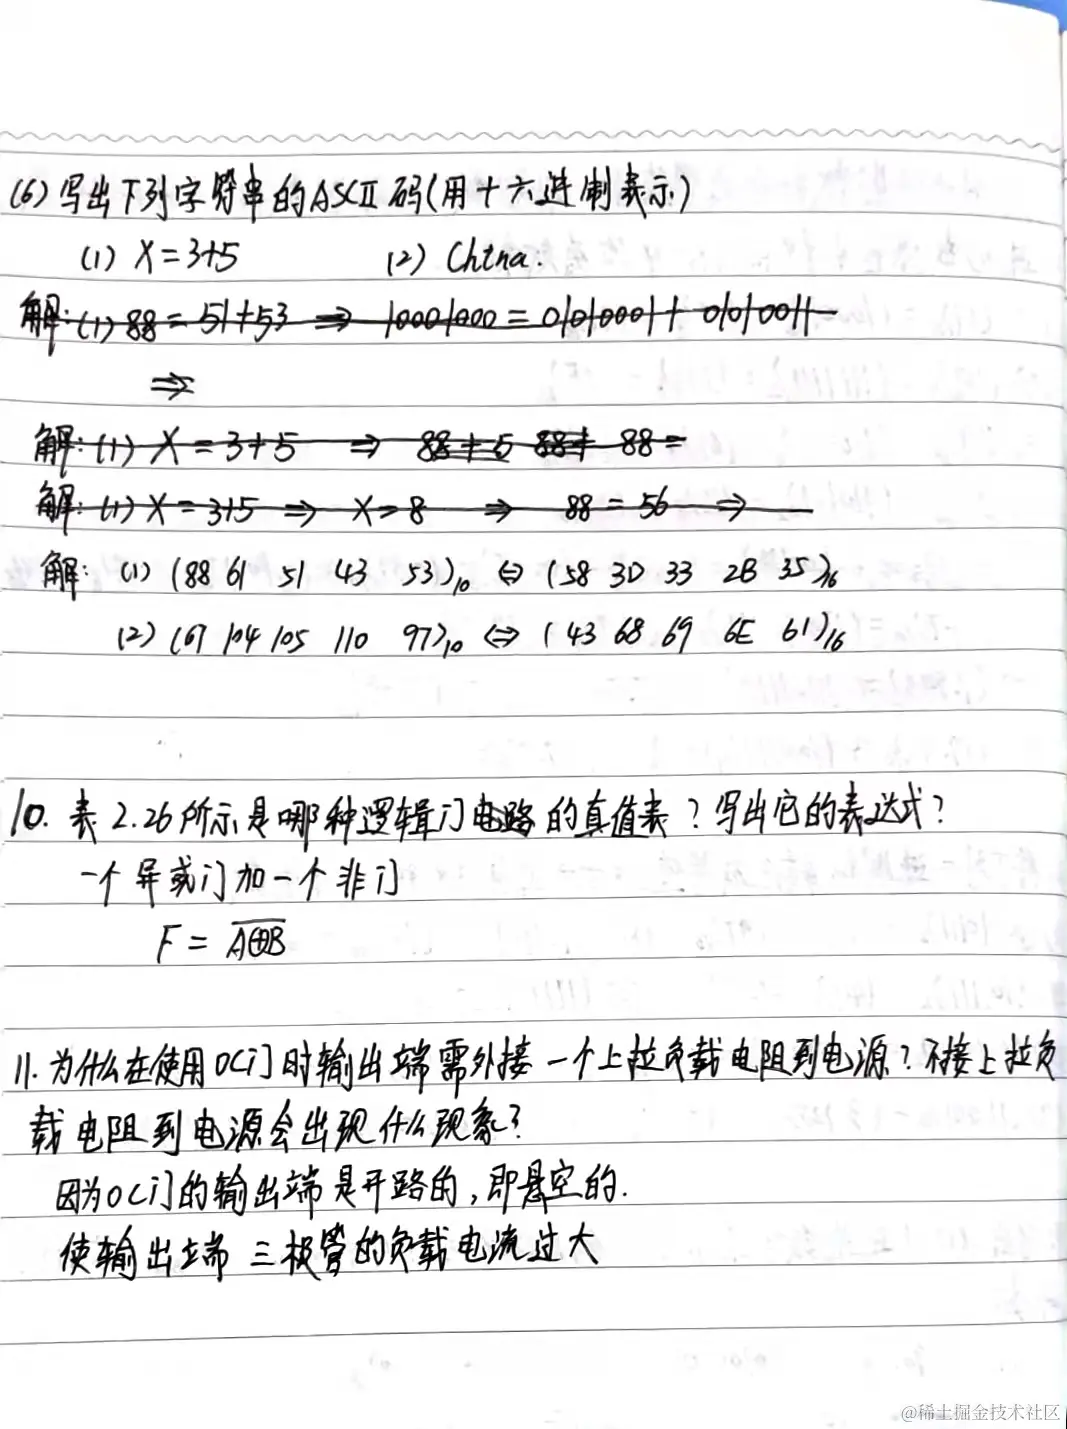 (6) 写出下列字符串的ASCⅡ码(用十六进制表示)
(1) X=3+5 (2) China.
解: (1) 88 = 51+53 ⇒ 10001000 = 01010001 + 01010011
⇒
解: (1) X = 3+5 ⇒ 88 + 5 88+ 88 =
解: (1) X = 3+5 ⇒ X=8 ⇒ 88 = 56 ⇒
解: (1) (88 61 51 43 53)₁₀ ⇔ (58 3D 33 2B 35)₁₆
(2) (67 104 105 110 97)₁₀ ⇔ (43 68 69 6E 61)₁₆
10. 表 2.26 所示是哪种逻辑门电路的真值表?写出它的表达式?
一个异或门加一个非门
F = \overline{A⊕B}
11. 为什么在使用OC门时输出端需外接一个上拉负载电阻到电源?不接上拉负
载电阻到电源会出现什么现象?
因为OC门的输出端是开路的,即悬空的.
使输出端三极管的负载电流过大
@稀土掘金技术社区